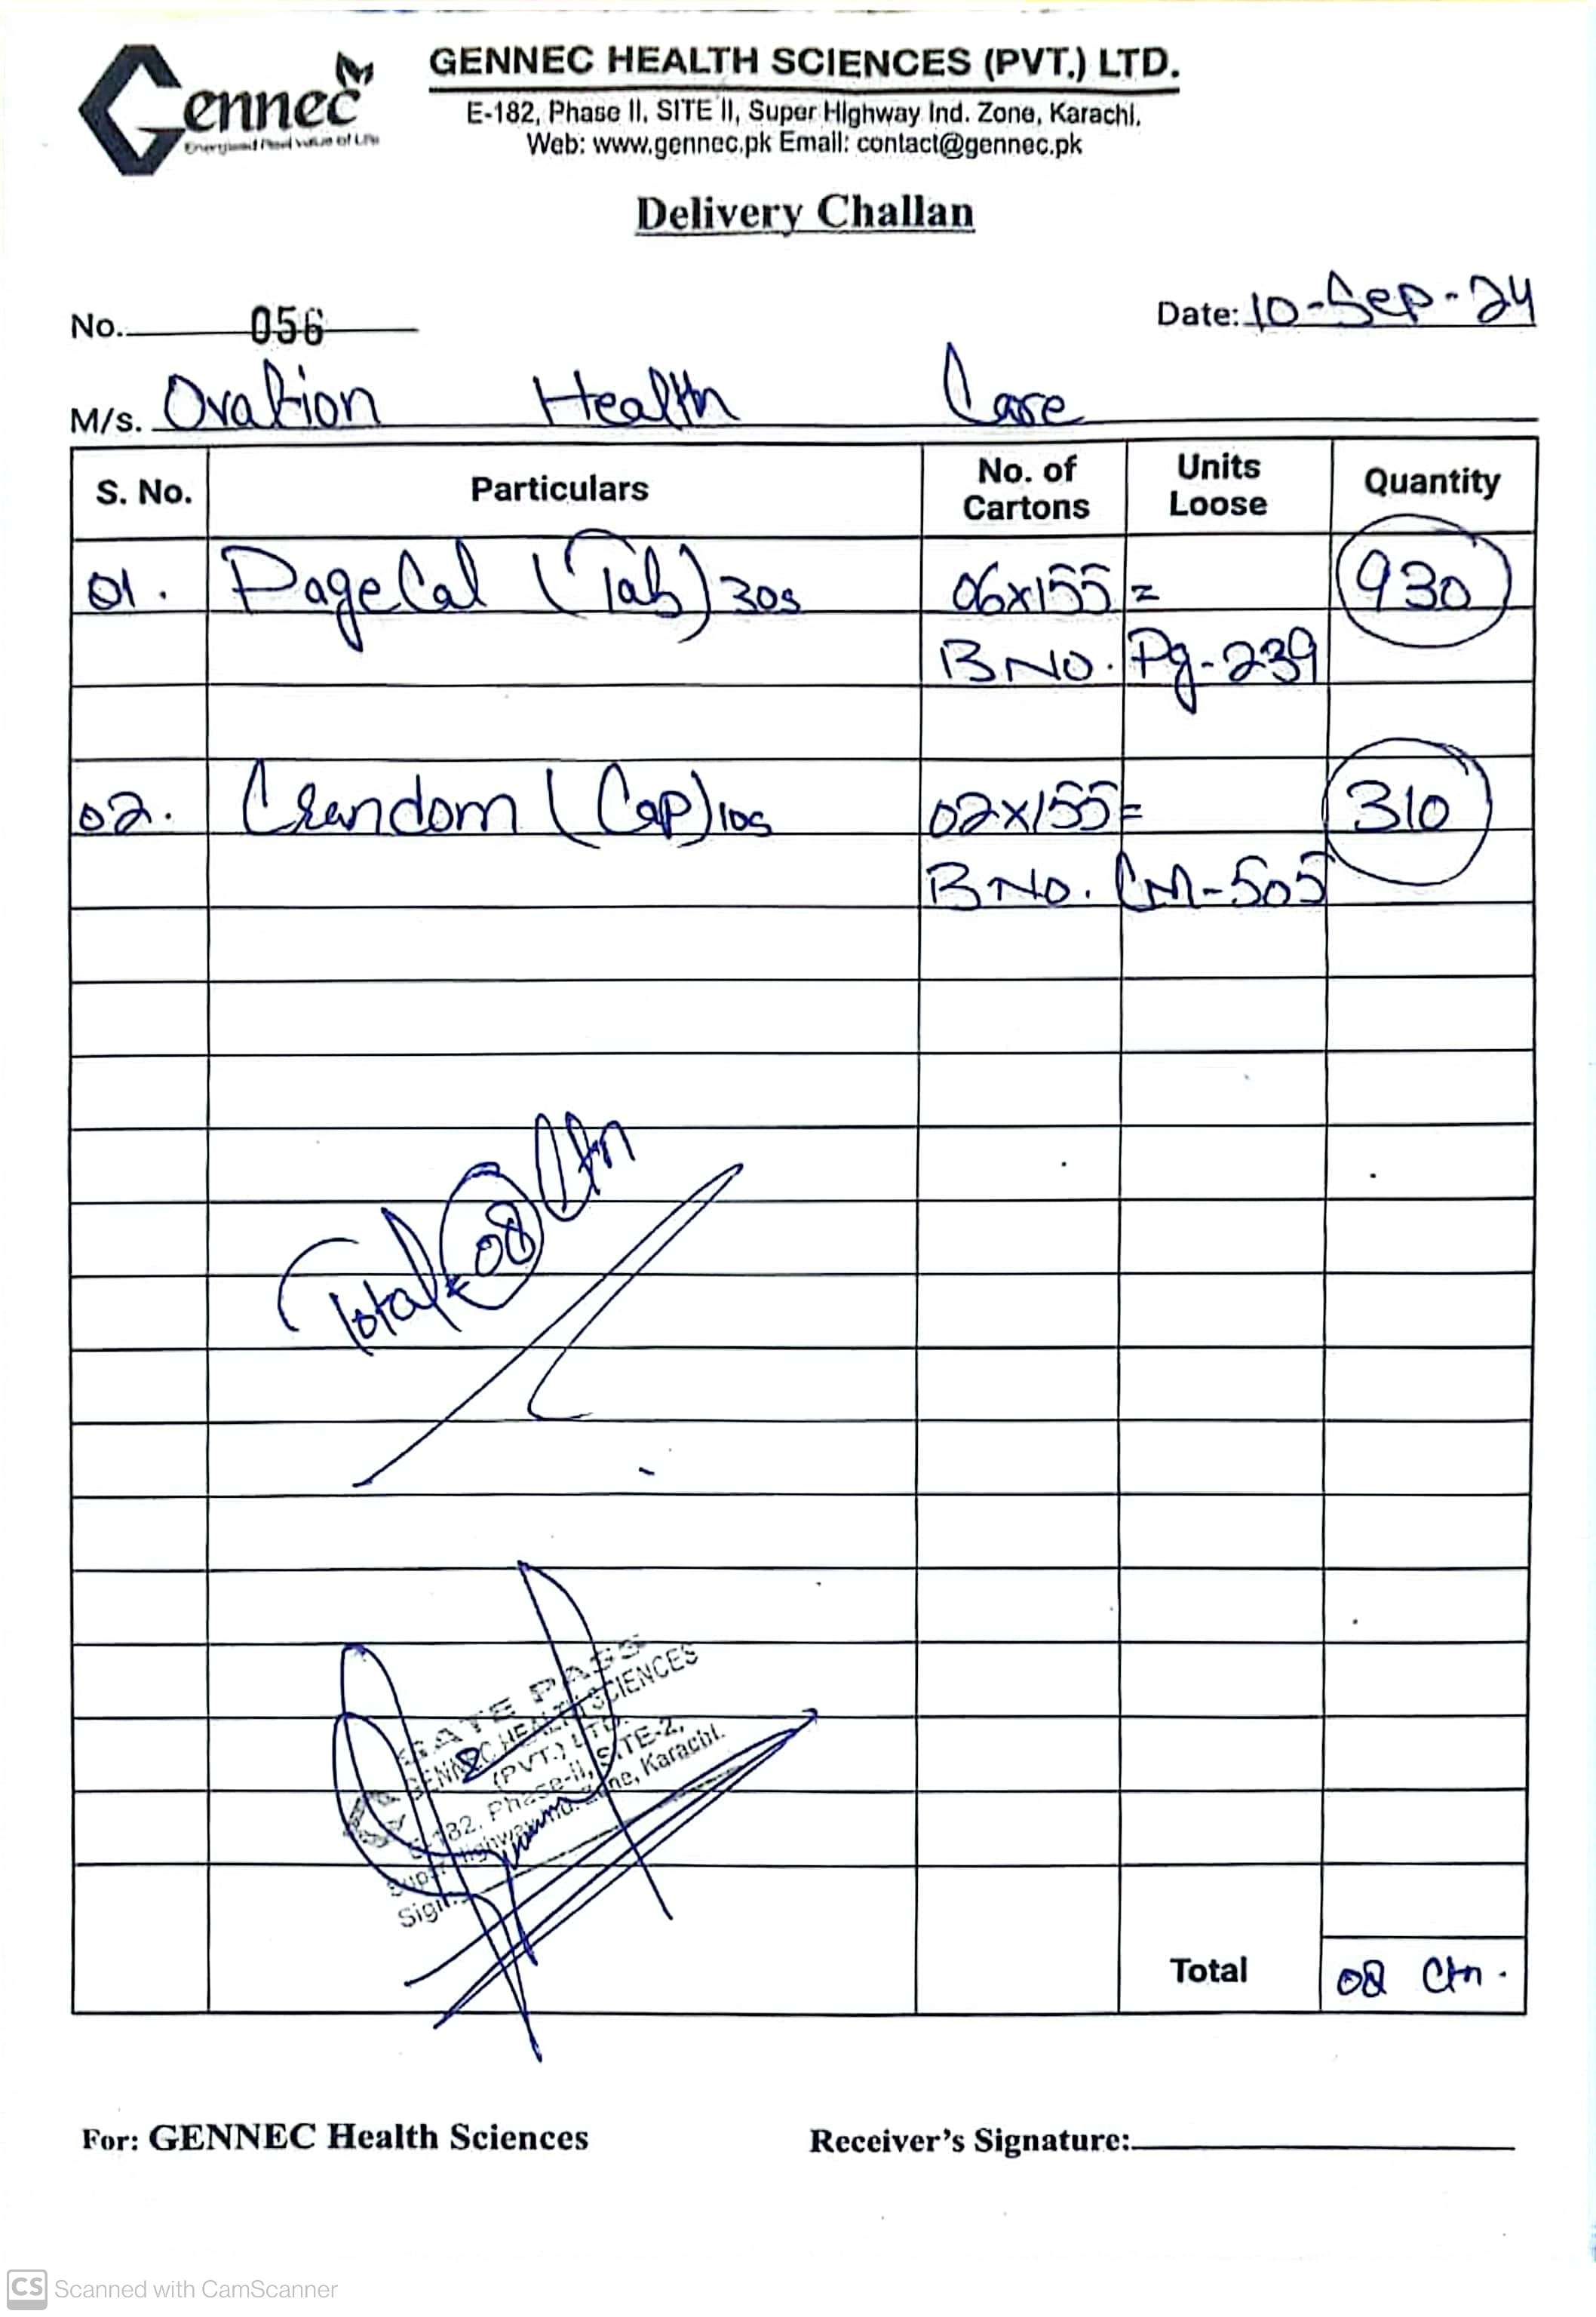 Gennec
GENNEC HEALTH SCIENCES (PVT.) LTD.
E-182, Phase II, SITE II, Super Highway Ind. Zone, Karachi.
Web: www.gennec.pk Email: contact@gennec.pk
Delivery Challan
No. 056
Date: 10-Sep-24
M/s. Ovation Health Care
S. No. Particulars No. of Cartons Units Loose Quantity
01. PageCal (Tab) 30s 06x155 = 930
B NO. Pg-239
02. Crandom (Cap) 10s 02x155= 310
B NO. CM-505
Total 08 Ctn
GATE PASS
GENNEC HEALTH SCIENCES
(PVT.) LTD.
E-182, Phase-II, SITE-2,
Super Highway Ind. Zone, Karachi.
Sign.
Total 08 Ctn.
For: GENNEC Health Sciences
Receiver's Signature:
CS Scanned with CamScanner